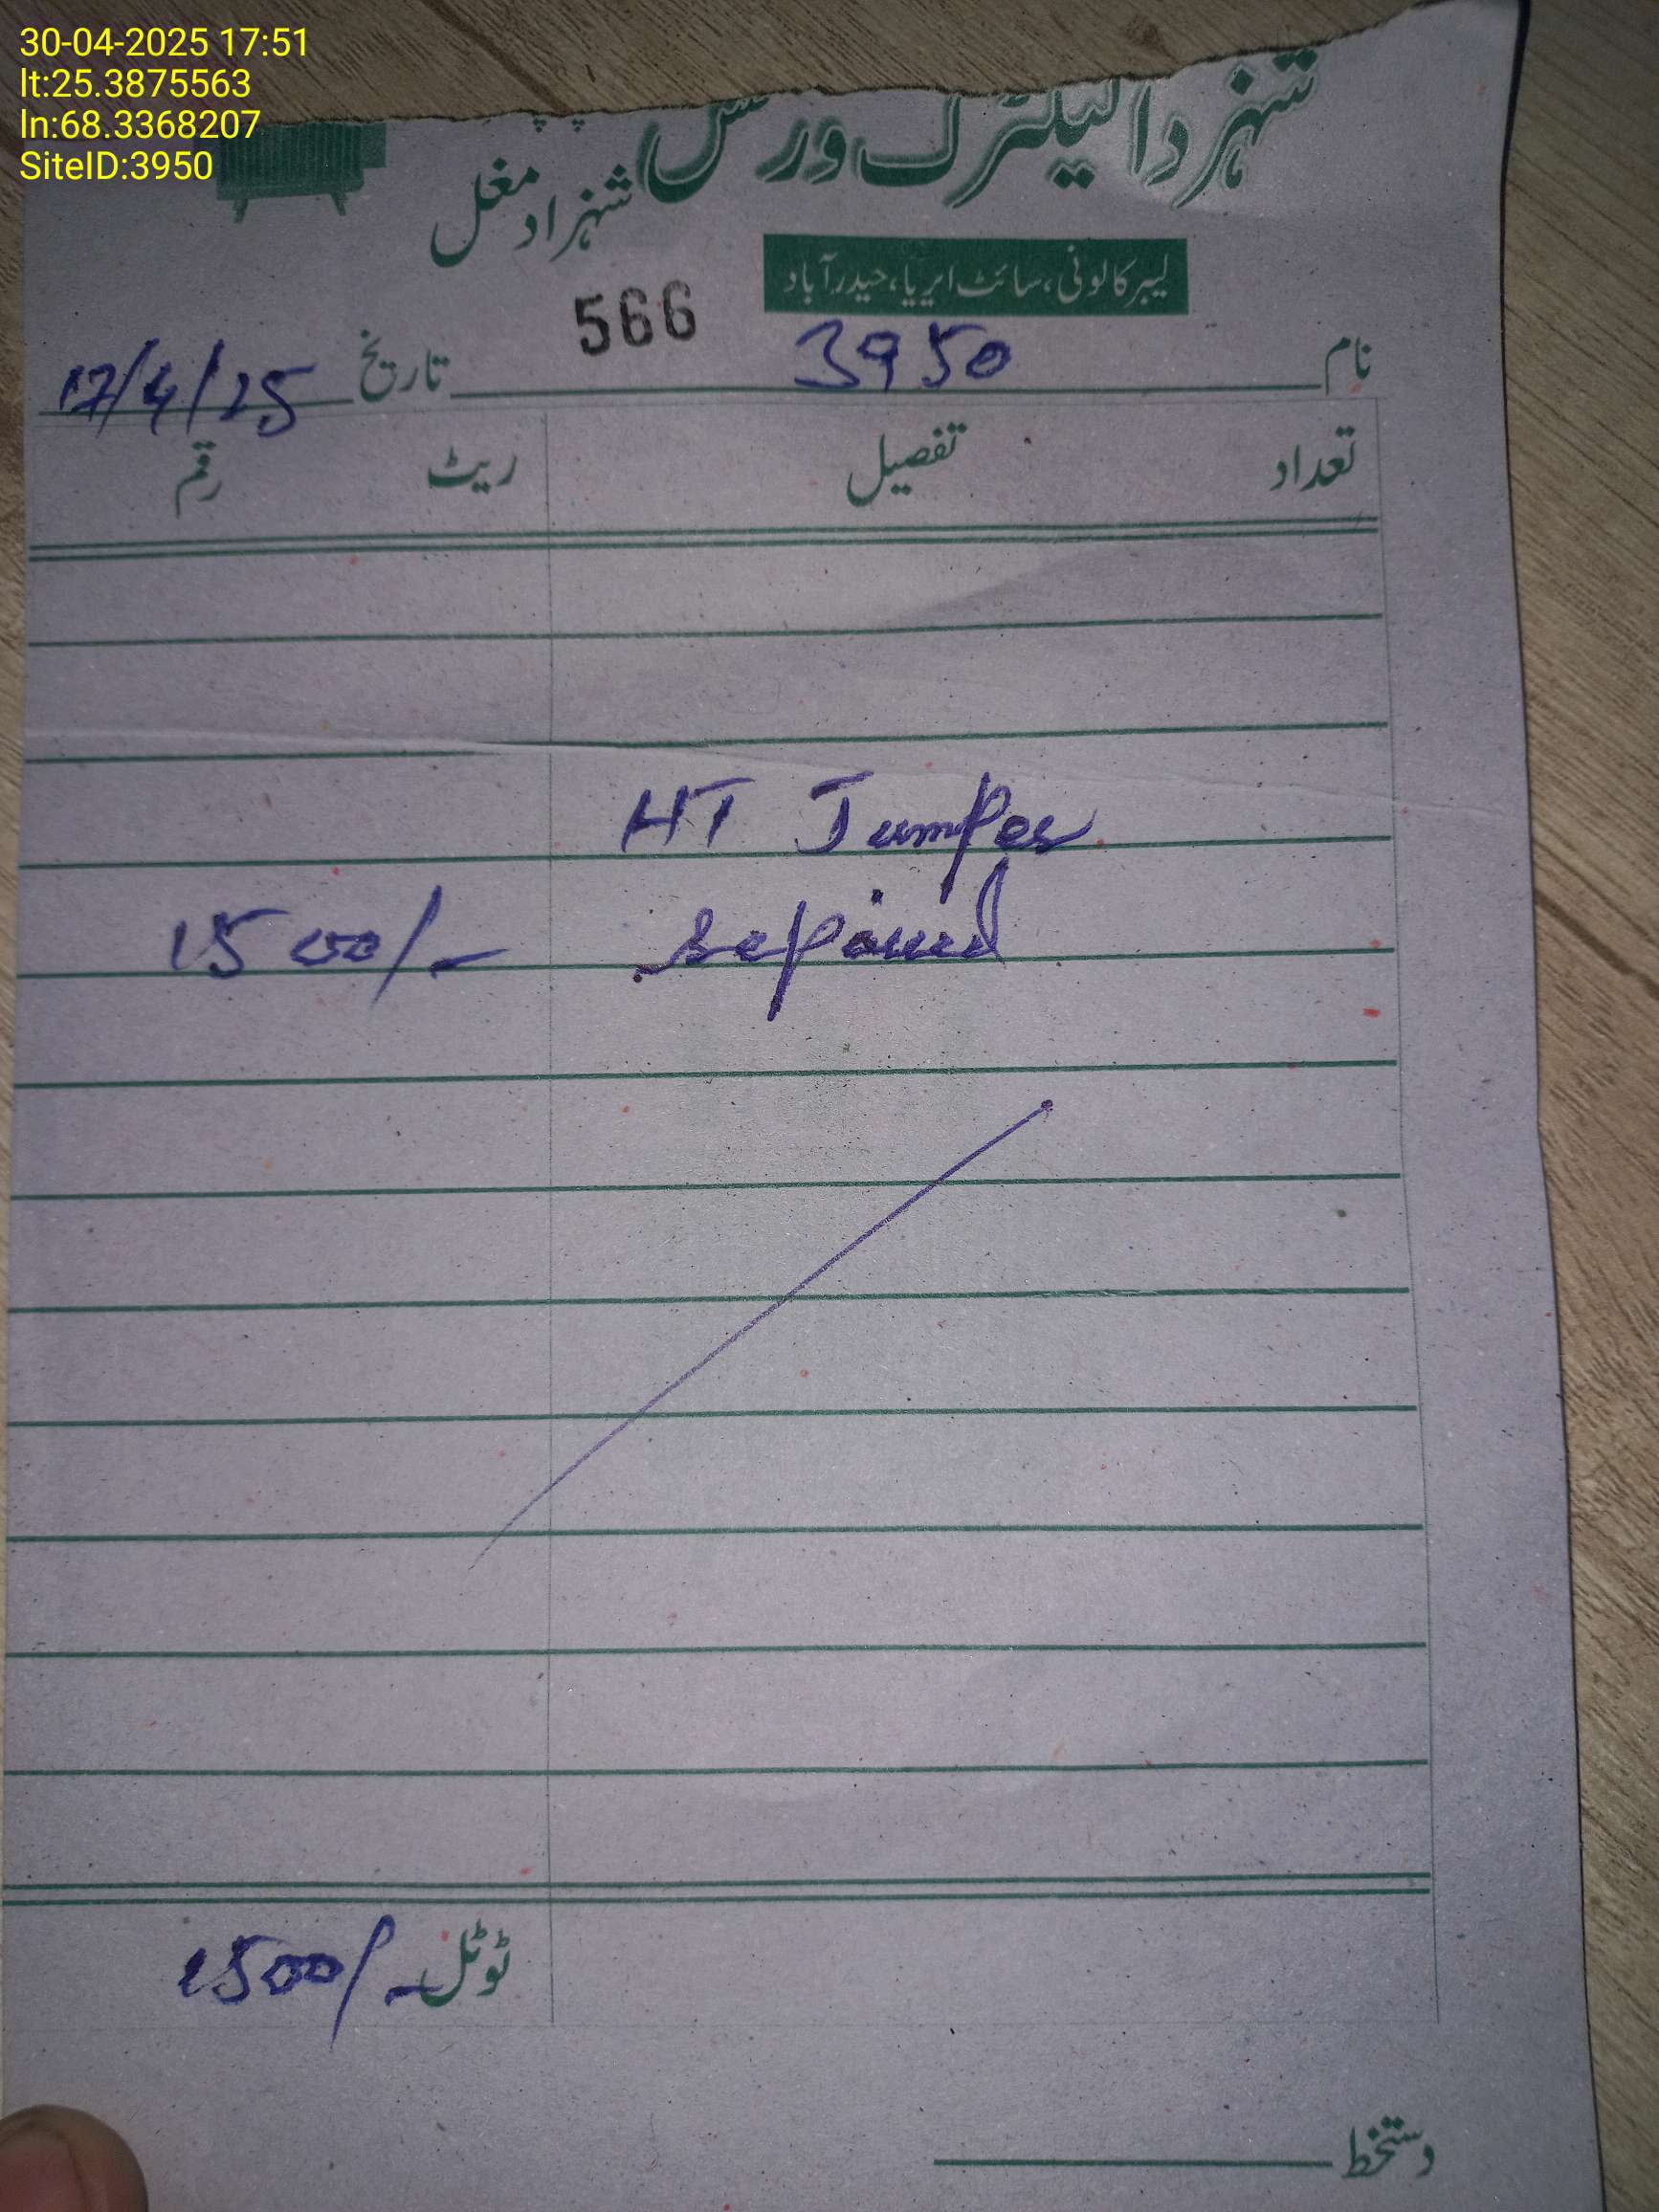 30-04-2025 17:51
lt:25.3875563
ln:68.3368207
SiteID:3950
شہزاد الیکٹرک ورکس
شہزاد مغل
لیبر کالونی، سائٹ ایریا، حیدرآباد
566
نام 3950 تاریخ 17/4/25
تعداد تفصیل ریٹ رقم
HT Jumper
repaired 1500/-
ٹوٹل 1500/-
دستخط